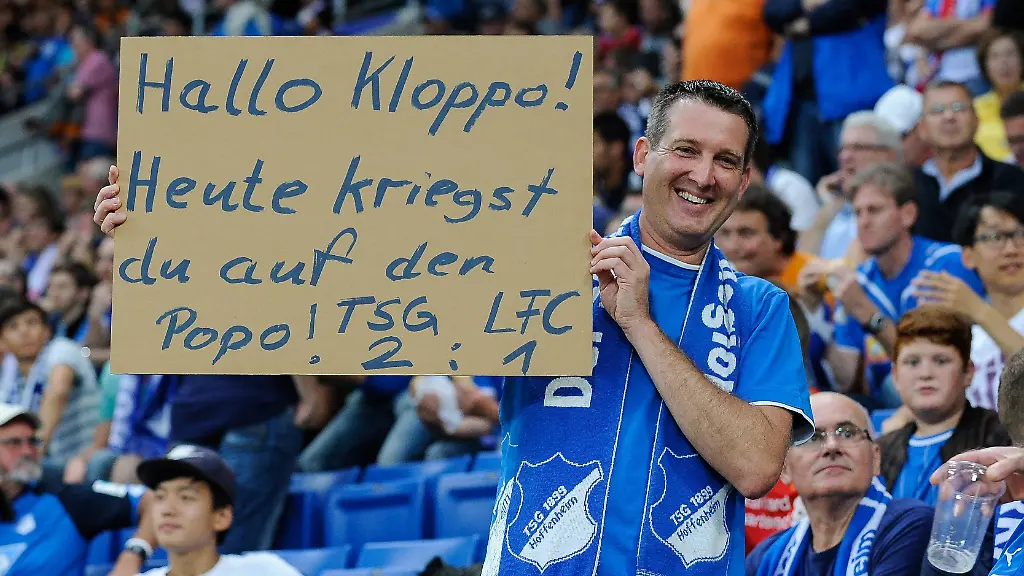 Hallo Kloppo!
Heute kriegst
du auf den
Popo! TSG LFC
2 : 1
TSG 1899
Hoffenheim
TSG 1899
Hoffenheim